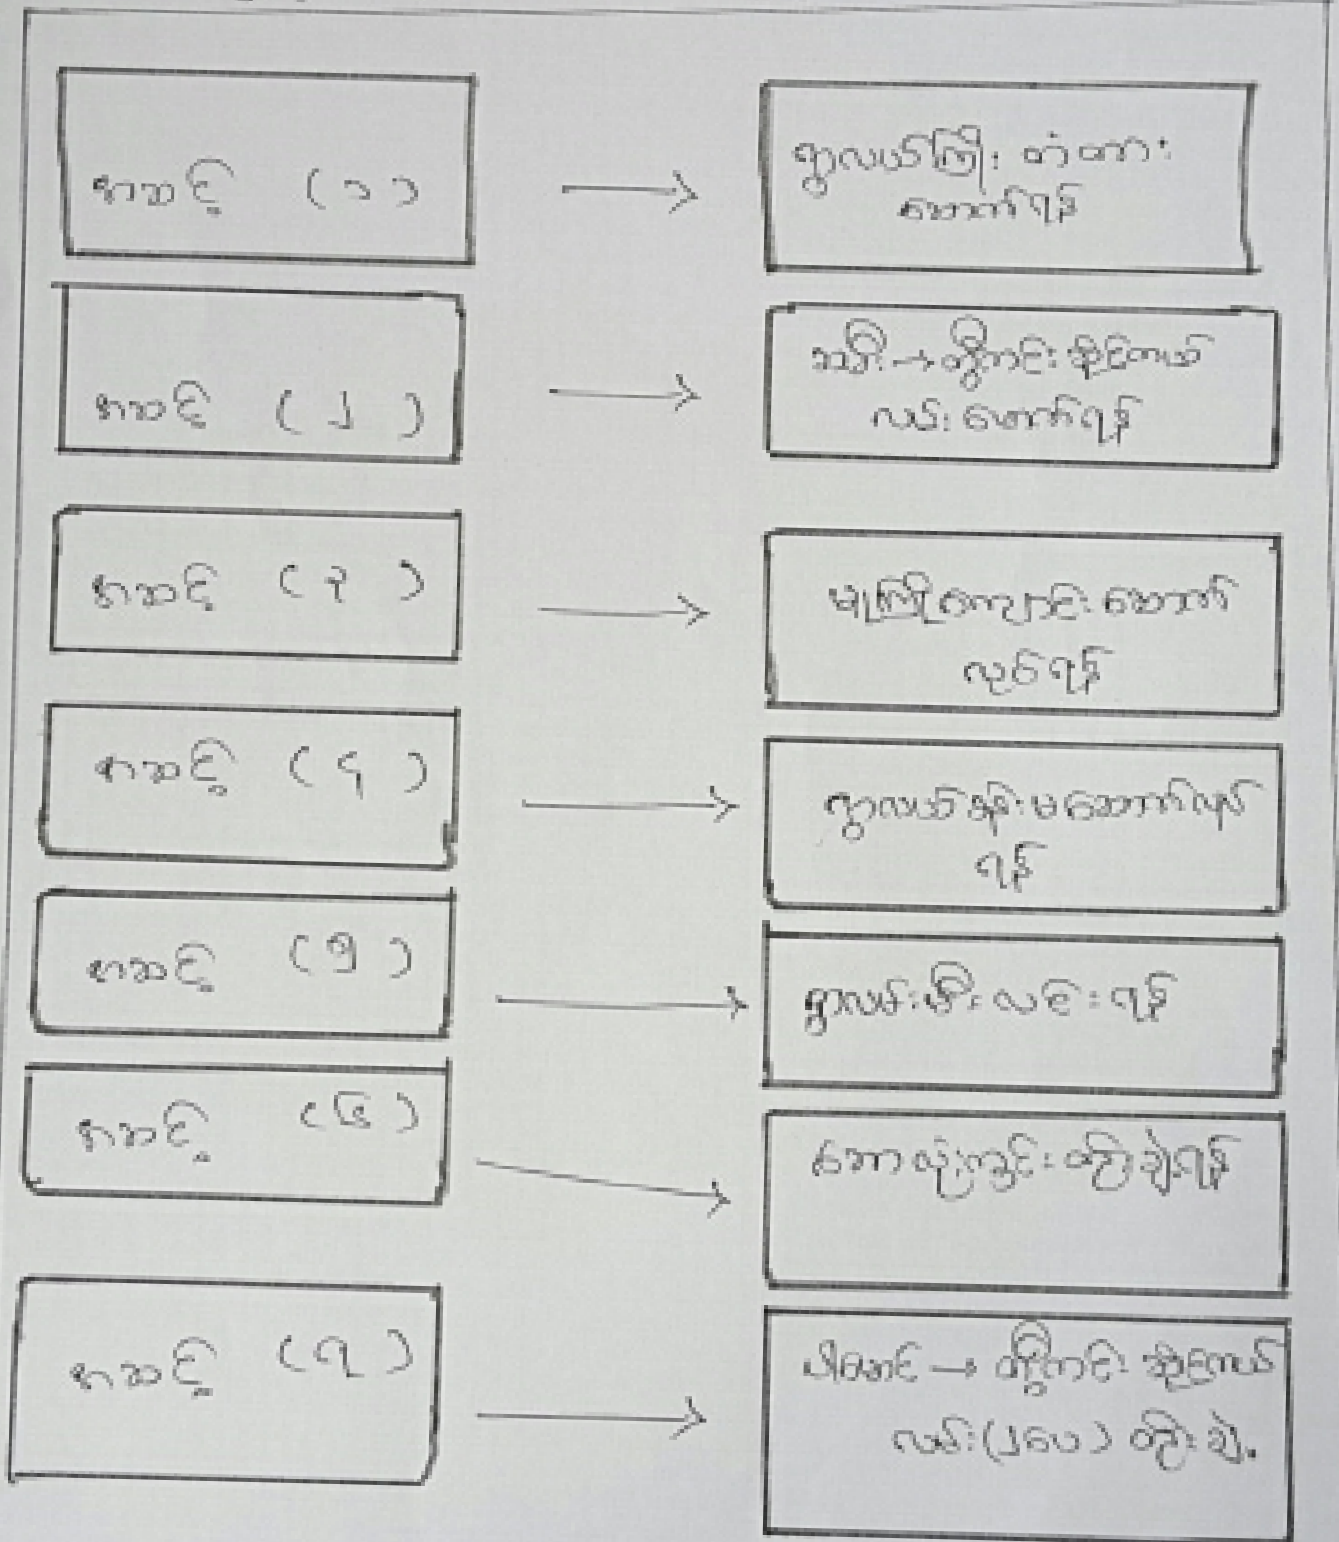 အဆင့် (၁)
ရွာလယ်ကြီး တံတား
ဆောက်ရန်
အဆင့် (၂)
သင်္ချိုင်း → ဆိုင်ကယ်
လမ်း ဖောက်ရန်
အဆင့် (၃)
မူကြိုကျောင်း ဆောက်
လုပ်ရန်
အဆင့် (၄)
ရွာလယ်ခန်းမဆောက်လုပ်
ရန်
အဆင့် (၅)
ရွာလမ်းမီးလင်းရန်
အဆင့် (၆)
ဘောလုံးကွင်း တိုးချဲ့ရန်
အဆင့် (၇)
→ ဆိုင်ကယ်
လမ်း (၂ပေ) တိုးချဲ့